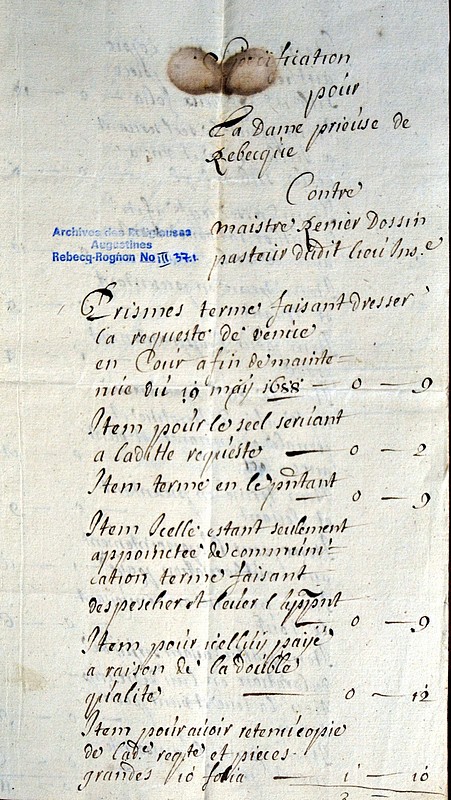 Specification
pour
La Dame prieuse de
Rebecque
Contre
maistre Renier Dossin
pasteur dudit lieu Ins.e
Archives des Religieuses
Augustines
Rebecq-Rognon No III 37.1.
Prismes terme faisant dresser
la requeste de venue
en Cour afin de mainte-
nue du 19 may 1688 — 0 — 9
Item pour le seel servant
a laditte requeste — 0 — 2
Item terme en le pntant
— 0 — 9
Item Icelle estant seulement
appointee de communi-
cation terme faisant
despescher et lever l appnt
— 0 — 9
Item pour icelluy payé
a raison de la double
qualite — 0 — 12
Item pour avoir retenu copie
de lad.e reqte et pieces
grandes 10 folia — 1 — 10